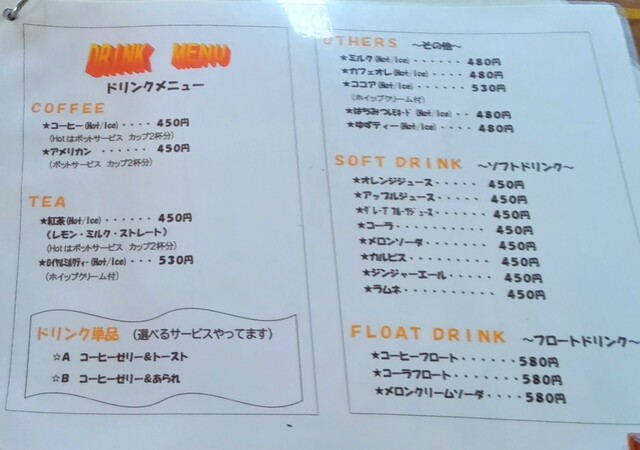 DRINK MENU
ドリンクメニュー
COFFEE
★コーヒー(Hot/Ice)・・・・450円
(Hotはポットサービス カップ2杯分)
★アメリカン ・・・・・450円
(ポットサービス カップ2杯分)
TEA
★紅茶(Hot/Ice)・・・・・・450円
《レモン・ミルク・ストレート》
(Hotはポットサービス カップ2杯分)
★ロイヤルミルクティー(Hot/Ice)・・・530円
(ホイップクリーム付)
ドリンク単品 (選べるサービスやってます)
☆A コーヒーゼリー&トースト
☆B コーヒーゼリー&あられ
OTHERS ～その他～
★ミルク(Hot/Ice)・・・・・・480円
★カフェオレ(Hot/Ice)・・・・480円
★ココア(Hot/Ice)・・・・・530円
(ホイップクリーム付)
★はちみつレモネード(Hot/Ice)・・480円
★ゆずティー(Hot/Ice)・・・・480円
SOFT DRINK ～ソフトドリンク～
★オレンジジュース・・・・・450円
★アップルジュース・・・・・450円
★グレープフルーツジュース・・・・450円
★コーラ・・・・・・・・・・450円
★メロンソーダ・・・・・・・450円
★カルピス・・・・・・・・・450円
★ジンジャーエール・・・・・450円
★ラムネ・・・・・・・・・・450円
FLOAT DRINK ～フロートドリンク～
★コーヒーフロート・・・・・・580円
★コーラフロート・・・・・・・580円
★メロンクリームソーダ・・・・580円